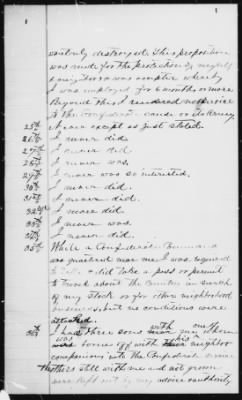 wantonly destroyed. This proposition
was made for the protection of myself
& neighbors was complete whereby
I was employed for 6 months or more
Beyond this I rendered no service
to the Confederate cause or otherwise
25th I never except as just stated
26th I never did.
27th I never did
28th I never was.
29th I never was so interested.
30th I never did.
31st I never did.
32nd I never did
33rd I never was.
34th I never did.
35th While a Confederate Command
was quartered near me I was required
to & did take a pass or permit
to travel about the Country in search
of my stock or for other neighborhood
business but no conditions were
attached.
36th I had three sons with me one whom
was borne off with his neighbor
companions into the Confederate
others still with me and all grown
were kept out by my advice & authority